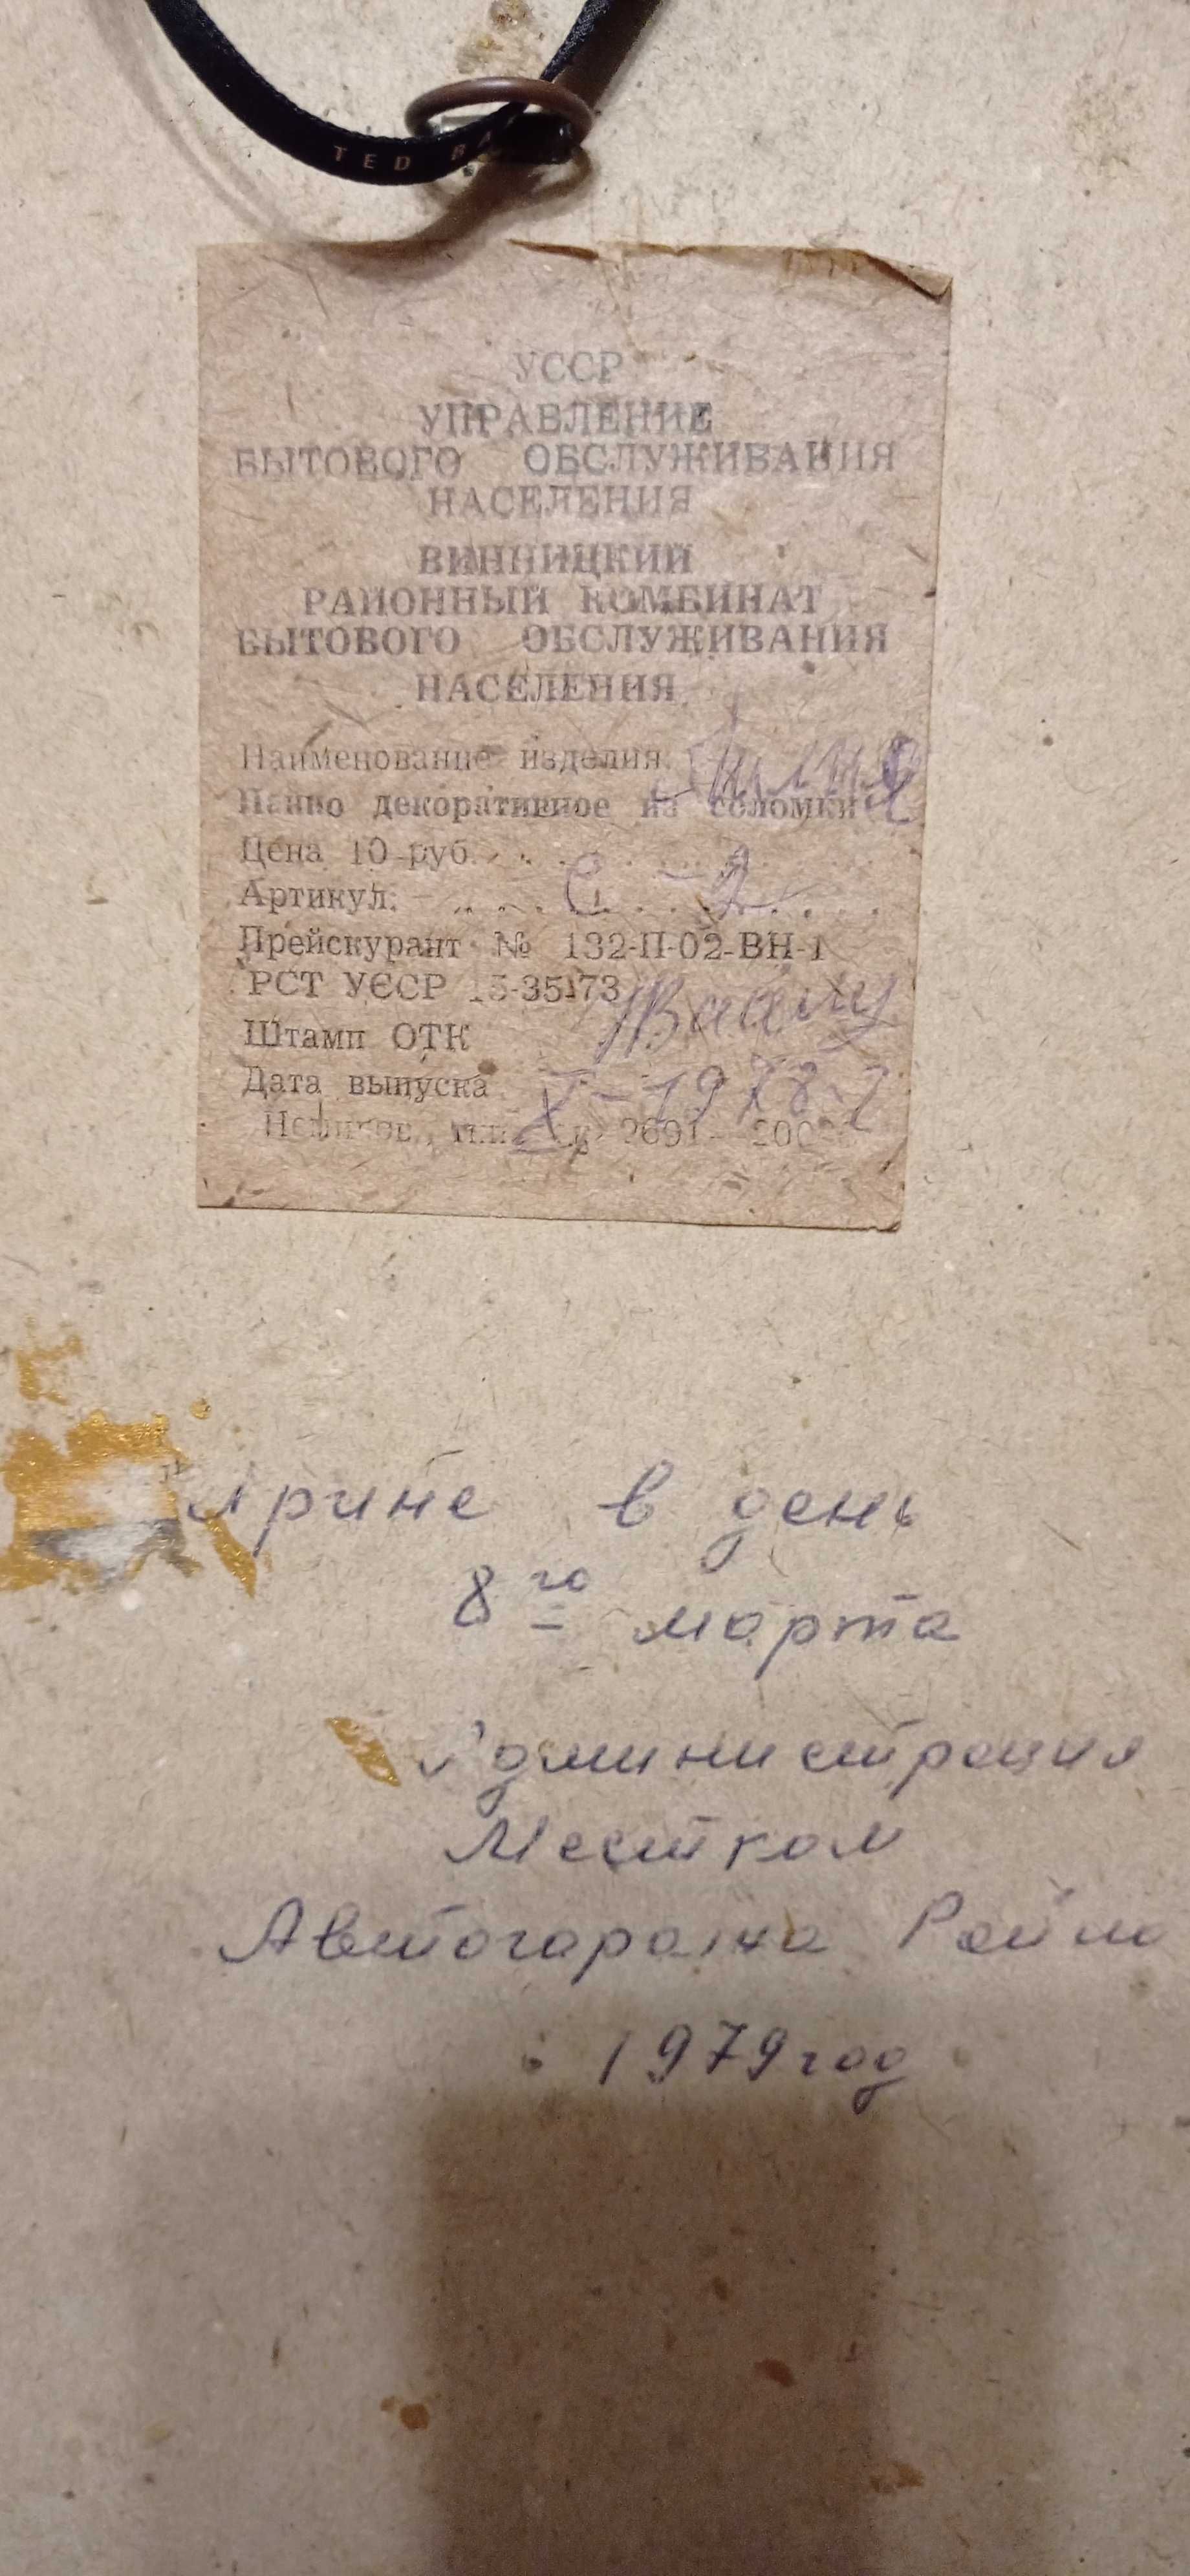 TED BA
УССР
УПРАВЛЕНИЕ
БЫТОВОГО ОБСЛУЖИВАНИЯ
НАСЕЛЕНИЯ
ВИННИЦКИЙ
РАЙОННЫЙ КОМБИНАТ
БЫТОВОГО ОБСЛУЖИВАНИЯ
НАСЕЛЕНИЯ
Наименование изделия
Панно декоративное из соломки
Цена 10 руб.
Артикул:
Прейскурант № 132-П-02-ВН-1
РСТ УССР 15-35-73
Штамп ОТК
Дата выпуска X-1978
2691
Ирине в день
8го марта
Администрация
Местком
Автогаража
1979 год